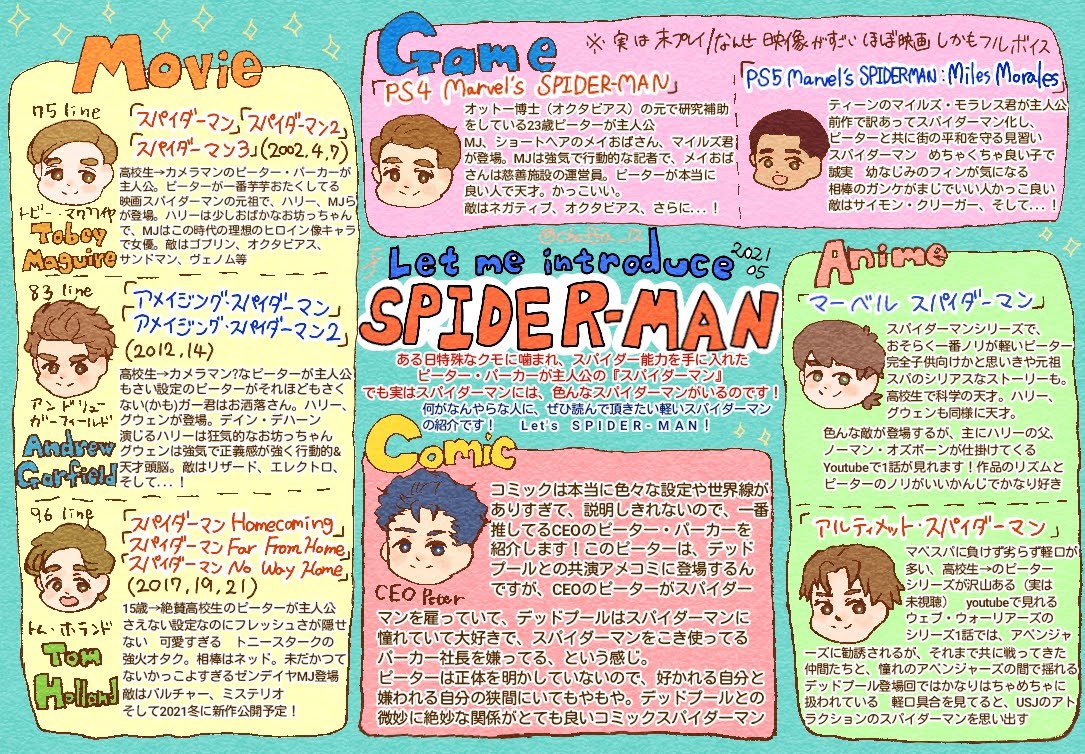 Movie
75 line
「スパイダーマン」「スパイダーマン2」
「スパイダーマン3」(2002.4.7)
高校生→カメラマンのピーター・パーカーが
主人公。ピーターが一番芋芋おたくしてる
映画スパイダーマンの元祖で、ハリー、MJら
が登場。ハリーは少しおばかなお坊っちゃん
で、MJはこの時代の理想のヒロイン像キャラ
で女優。敵はゴブリン、オクタビアス、
サンドマン、ヴェノム等
トビー・マグワイヤ
Tobey
Maguire
83 line
アメイジング・スパイダーマン
アメイジング・スパイダーマン2
(2012.14)
高校生→カメラマン?なピーターが主人公
もさい設定のピーターがそれほどもさく
ない(かも)ガー君はお洒落さん。ハリー、
グウェンが登場。デイン・デハーン
演じるハリーは狂気的なお坊っちゃん
グウェンは強気で正義感が強く行動的&
天才頭脳。敵はリザード、エレクトロ、
そして...！
アンドリュー
ガーフィールド
Andrew
Garfield
96 line
「スパイダーマン Homecoming」
「スパイダーマン Far From Home」
「スパイダーマン No Way Home」
(2017.19.21)
15歳→絶賛高校生のピーターが主人公
さえない設定なのにフレッシュさが隠せ
ない　可愛すぎる　トニースタークの
強火オタク。相棒はネッド。未だかつて
ないかっこよすぎるゼンデイヤMJ登場
敵はバルチャー、ミステリオ
そして2021冬に新作公開予定！
トム・ホランド
Tom
Holland
Game
※ 実は未プレイ/なんせ映像がすごい ほぼ映画 しかもフルボイス
「PS4 Marvel's SPIDER-MAN」
オットー博士（オクタビアス）の元で研究補助
をしている23歳ピーターが主人公
MJ、ショートヘアのメイおばさん、マイルズ君
が登場。MJは強気で行動的な記者で、メイおば
さんは慈善施設の運営員。ピーターが本当に
良い人で天才。かっこいい。
敵はネガティブ、オクタビアス、さらに...！
「PS5 Marvel's SPIDERMAN:Miles Morales」
ティーンのマイルズ・モラレス君が主人公
前作で訳あってスパイダーマン化し、
ピーターと共に街の平和を守る見習い
スパイダーマン　めちゃくちゃ良い子で
誠実　幼なじみのフィンが気になる
相棒のガンケがまじでいい人かっこ良い
敵はサイモン・クリーガー、そして...！
Let me introduce
2021
05
SPIDER-MAN
ある日特殊なクモに噛まれ、スパイダー能力を手に入れた
ピーター・パーカーが主人公の『スパイダーマン』
でも実はスパイダーマンには、色んなスパイダーマンがいるのです！
何がなんやらな人に、ぜひ読んで頂きたい軽いスパイダーマン
の紹介です！　Let's SPIDER-MAN！
Comic
CEO Peter
コミックは本当に色々な設定や世界線が
ありすぎて、説明しきれないので、一番
推してるCEOのピーター・パーカーを
紹介します！このピーターは、デッド
プールとの共演アメコミに登場するん
ですが、CEOのピーターがスパイダー
マンを雇っていて、デッドプールはスパイダーマンに
憧れていて大好きで、スパイダーマンをこき使ってる
パーカー社長を嫌ってる、という感じ。
ピーターは正体を明かしていないので、好かれる自分と
嫌われる自分の狭間にいてもやもや。デッドプールとの
微妙に絶妙な関係がとても良いコミックスパイダーマン
Anime
「マーベル スパイダーマン」
スパイダーマンシリーズで、
おそらく一番ノリが軽いピーター
完全子供向けかと思いきや元祖
スパのシリアスなストーリーも。
高校生で科学の天才。ハリー、
グウェンも同様に天才。
色んな敵が登場するが、主にハリーの父、
ノーマン・オズボーンが仕掛けてくる
Youtubeで1話が見れます！作品のリズムと
ピーターのノリがいいかんじでかなり好き
「アルティメット・スパイダーマン」
マベスパに負けず劣らず軽口が
多い、高校生→のピーター
シリーズが沢山ある（実は
未視聴）　youtubeで見れる
ウェブ・ウォーリアーズの
シリーズ1話では、アベンジャ
ーズに勧誘されるが、それまで共に戦ってきた
仲間たちと、憧れのアベンジャーズの間で揺れる
デッドプール登場回ではかなりはちゃめちゃに
扱われている　軽口具合を見てると、USJのアト
ラクションのスパイダーマンを思い出す